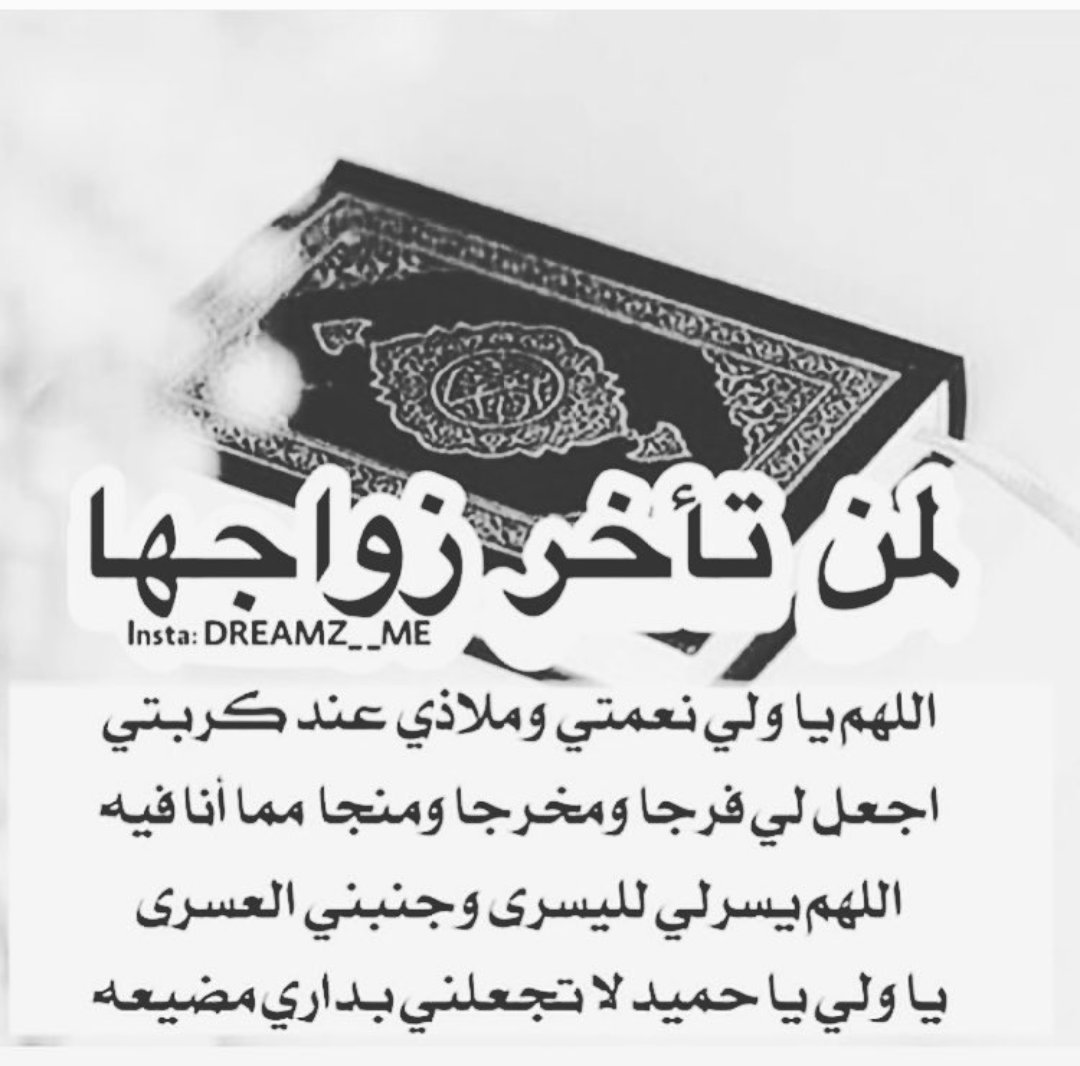 لمن تأخر زواجها
Insta: DREAMZ__ME
اللهم يا ولي نعمتي وملاذي عند كربتي
اجعل لي فرجا ومخرجا ومنجا مما أنا فيه
اللهم يسرلي لليسرى وجنبني العسرى
يا ولي يا حميد لا تجعلني بداري مضيعه